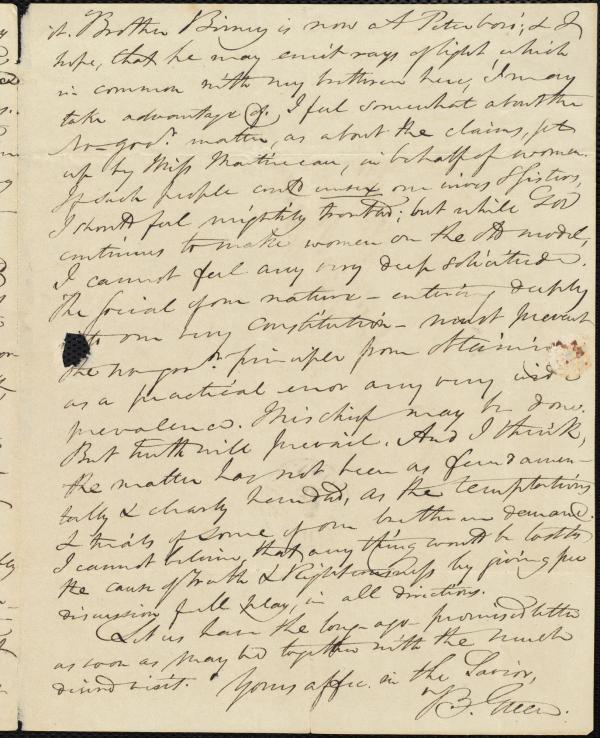 it. Brother Birney is now at Peterboro'; & I
hope, that he may emit rays of light, which
in common with my brethren here, I may
take advantage of. I feel somewhat about the
No-govt. matter, as about the claims, set
up by Miss Martineau, in behalf of women.
If such people could unsex our wives & sisters,
I should feel mightily troubled; but while God
continues to make women on the old model,
I cannot feel any very deep solicitude.
The social of our nature — entering deeply
into our very constitution — must prevent
the no-govt. principle from obtaining
as a practical error any very wide
prevalence. Mischief may be done.
But truth will prevail. And I think,
the matter has not been as fundamen-
tally & clearly handled, as the temptations
& trials of some of our brethren demand.
I cannot believe, that any thing would be lost to
the cause of truth & Righteousness by giving free
discussion full play, in all directions.
Let us have the long-ago-promised letter
as soon as may be together with the much
desired visit. Yours affec. in the Savior,
B. Green.